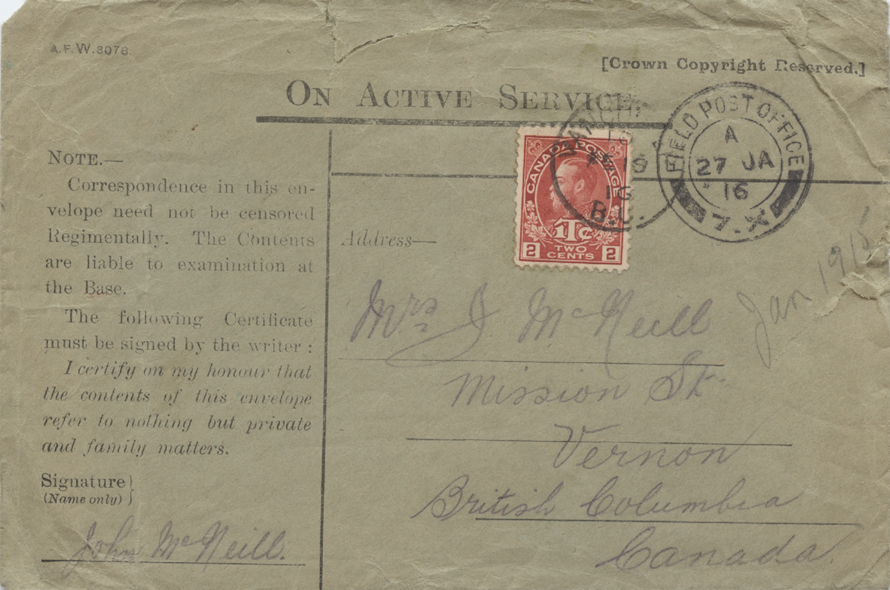 A.F.W.3078
[Crown Copyright Reserved.]
ON ACTIVE SERVICE.
FIELD POST OFFICE
A
27 JA
16
7.X
16
B.C.
CANADA POSTAGE
1Tc
2 TWO CENTS 2
NOTE.—
Correspondence in this en-
velope need not be censored
Regimentally. The Contents
are liable to examination at
the Base.
The following Certificate
must be signed by the writer:
I certify on my honour that
the contents of this envelope
refer to nothing but private
and family matters.
Signature }
(Name only) }
John McNeill.
Address—
Mrs J McNeill
Mission St.
Vernon
British Columbia
Canada.
Jan 1915